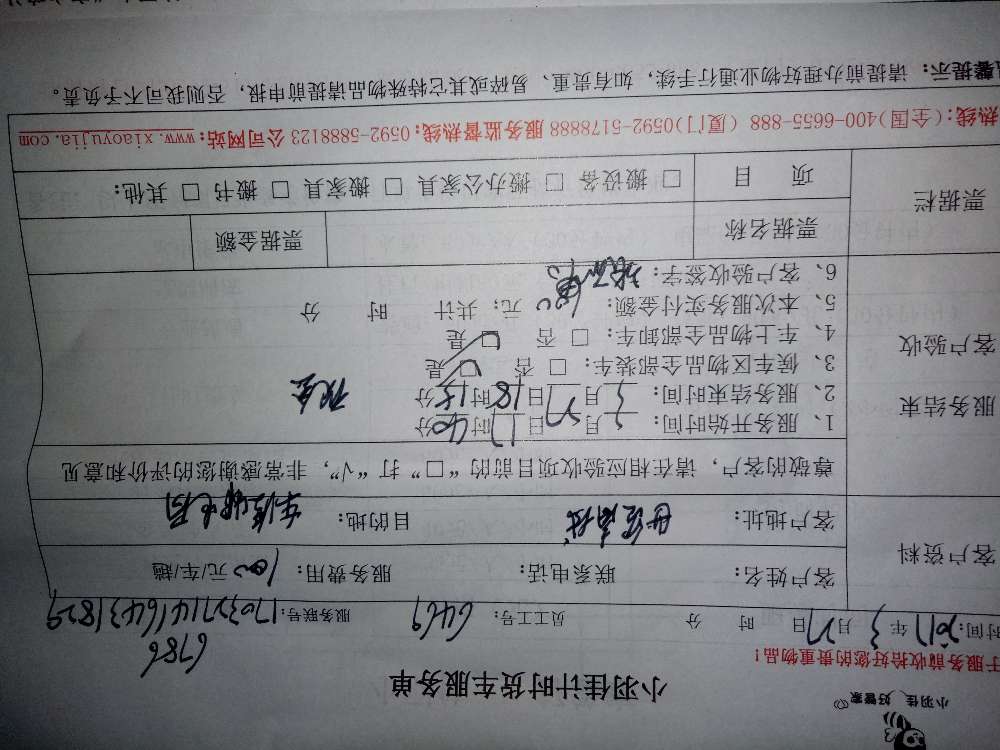 小羽佳、好管家
小羽佳计时货车服务单
于服务前收拾好您的贵重物品！
6786
时间：2017年3月27日 时 分 员工工号：6469 服务联号：1703271416431829
客户资料
客户姓名： 联系电话： 服务费用：100元/车/趟
客户地址： 目的地：
尊敬的客户，请在相应验收项目前的“□”打“√”，非常感谢您的评价和意见
服务结束
客户验收
1、服务开始时间：3月27日17时40分
2、服务结束时间：3月27日18时15分 现金
3、候车区物品全部装车：□ 否 □ 是
4、车上物品全部卸车：□ 否 □ 是
5、本次服务实付金额：100元；共计 时 分
6、客户验收签字：
票据栏
票据名称 票据金额
项 目 □ 搬设备 □ 搬办公家具 □ 搬家具 □ 搬书 □ 其他：
热线：(全国)400-6655-888 (厦门)0592-5178888 服务监督热线：0592-5888123 公司网站：www.xiaoyujia.com
馨提示：请提前办理好物业通行手续，如有贵重、易碎或其它特殊物品请提前申报，否则我司不予负责。